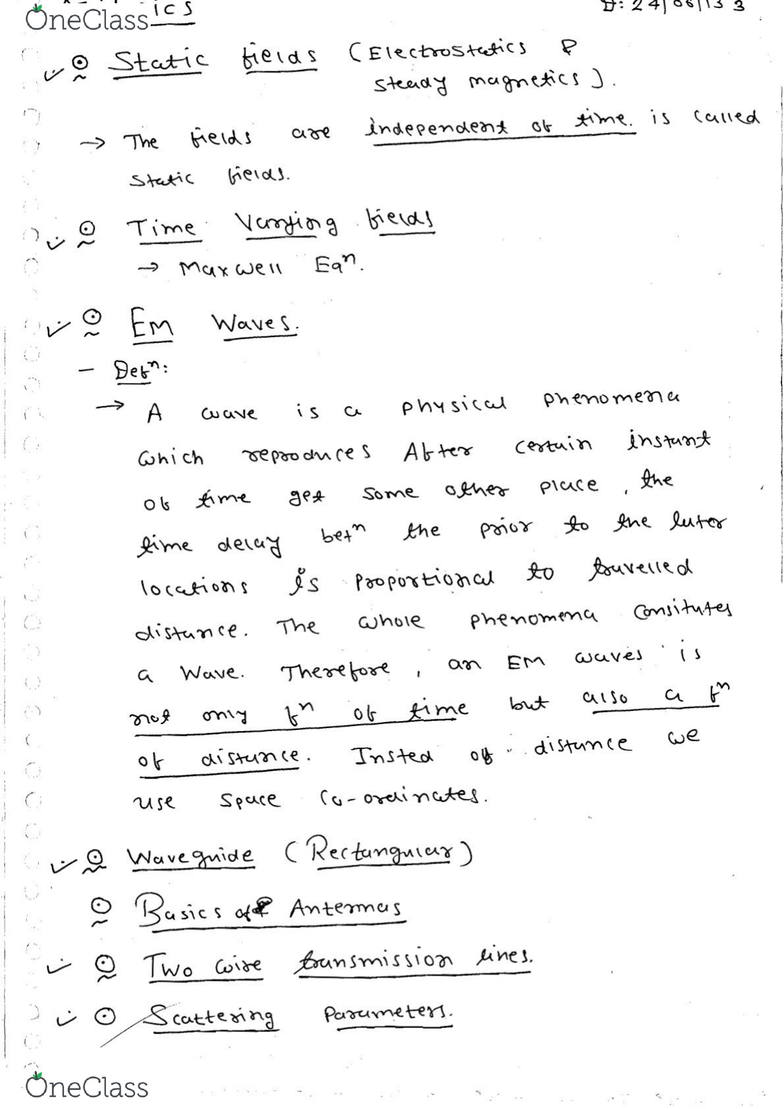 OneClass ics
D: 24/06/13 3
Static fields (Electrostatics &
steady magnetics).
→ The fields are independent of time. is called
static fields.
Time Varying fields
→ Maxwell Eqⁿ.
EM Waves.
- Defⁿ:
→ A wave is a physical phenomena
which reproduces After certain instant
of time get some other place, the
time delay betⁿ the prior to the later
locations is proportional to travelled
distance. The whole phenomena consitutes
a wave. Therefore, an EM waves is
not only fⁿ of time but also a fⁿ
of distance. Insted of distance we
use space co-ordinates.
Waveguide (Rectangular)
Basics of Antennas
Two wire transmission lines.
Scattering Parameters.
OneClass